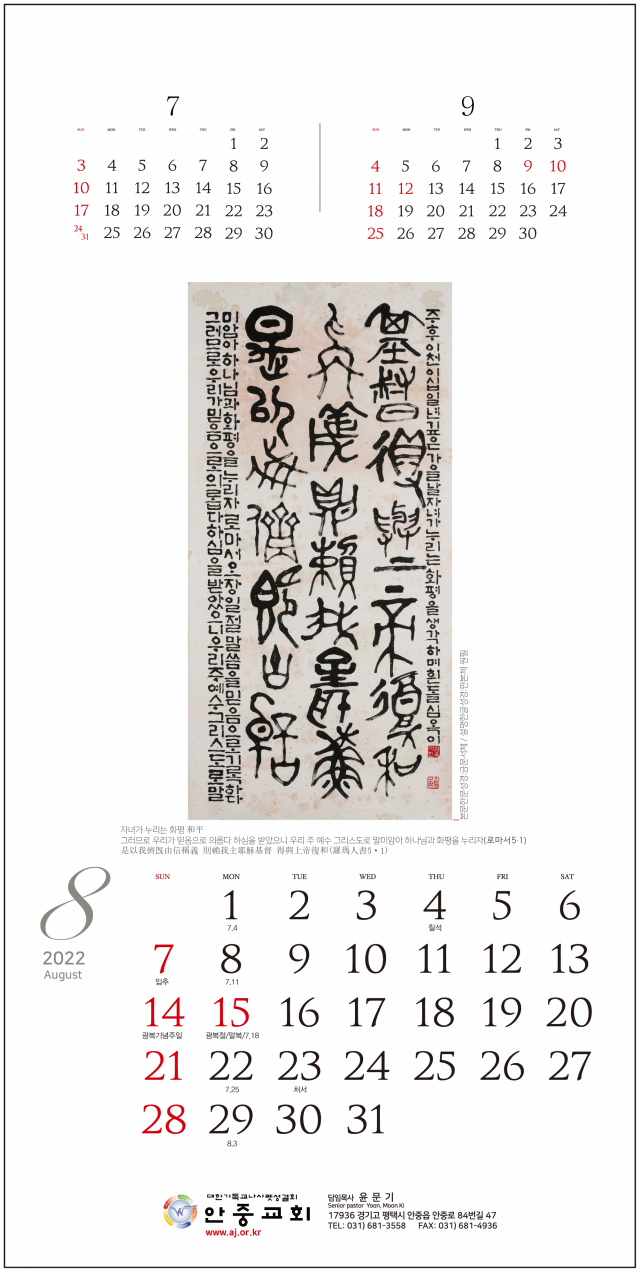 7
SUN MON TUE WED THU FRI SAT
1 2
3 4 5 6 7 8 9
10 11 12 13 14 15 16
17 18 19 20 21 22 23
24 31 25 26 27 28 29 30
9
SUN MON TUE WED THU FRI SAT
1 2 3
4 5 6 7 8 9 10
11 12 13 14 15 16 17
18 19 20 21 22 23 24
25 26 27 28 29 30
주후 이천이십일년 깊은 가을날 자녀가 누리는 화평을 생각하며 흰돌 심옥이
基督得與上帝復和
主耶穌
則賴我
是以我儕旣由信稱
그러므로 우리가 믿음으로 의롭다 하심을 받았으니 우리 주 예수 그리스도로 말
미암아 하나님과 화평을 누리자 로마서 오장 일절 말씀을 믿음으로 기록한다
본문한문성경:금문서체 / 설명한글성경:판본체 원필
자녀가 누리는 화평 和平
그러므로 우리가 믿음으로 의롭다 하심을 받았으니 우리 주 예수 그리스도로 말미암아 하나님과 화평을 누리자(로마서5·1)
是以我儕旣由信稱義 則賴我主耶穌基督 得與上帝復和(羅瑪人書5·1)
8
2022
August
SUN MON TUE WED THU FRI SAT
1 2 3 4 5 6
7.4 칠석
7 8 9 10 11 12 13
입추 7.11
14 15 16 17 18 19 20
광복기념주일 광복절/말복/7.18
21 22 23 24 25 26 27
7.25 처서
28 29 30 31
8.3
대한기독교나사렛성결회
안중교회
www.aj.or.kr
담임목사 윤문기
Senior pastor Yoon, Moon Ki
17936 경기고 평택시 안중읍 안중로 84번길 47
TEL: 031) 681-3558 FAX: 031) 681-4936